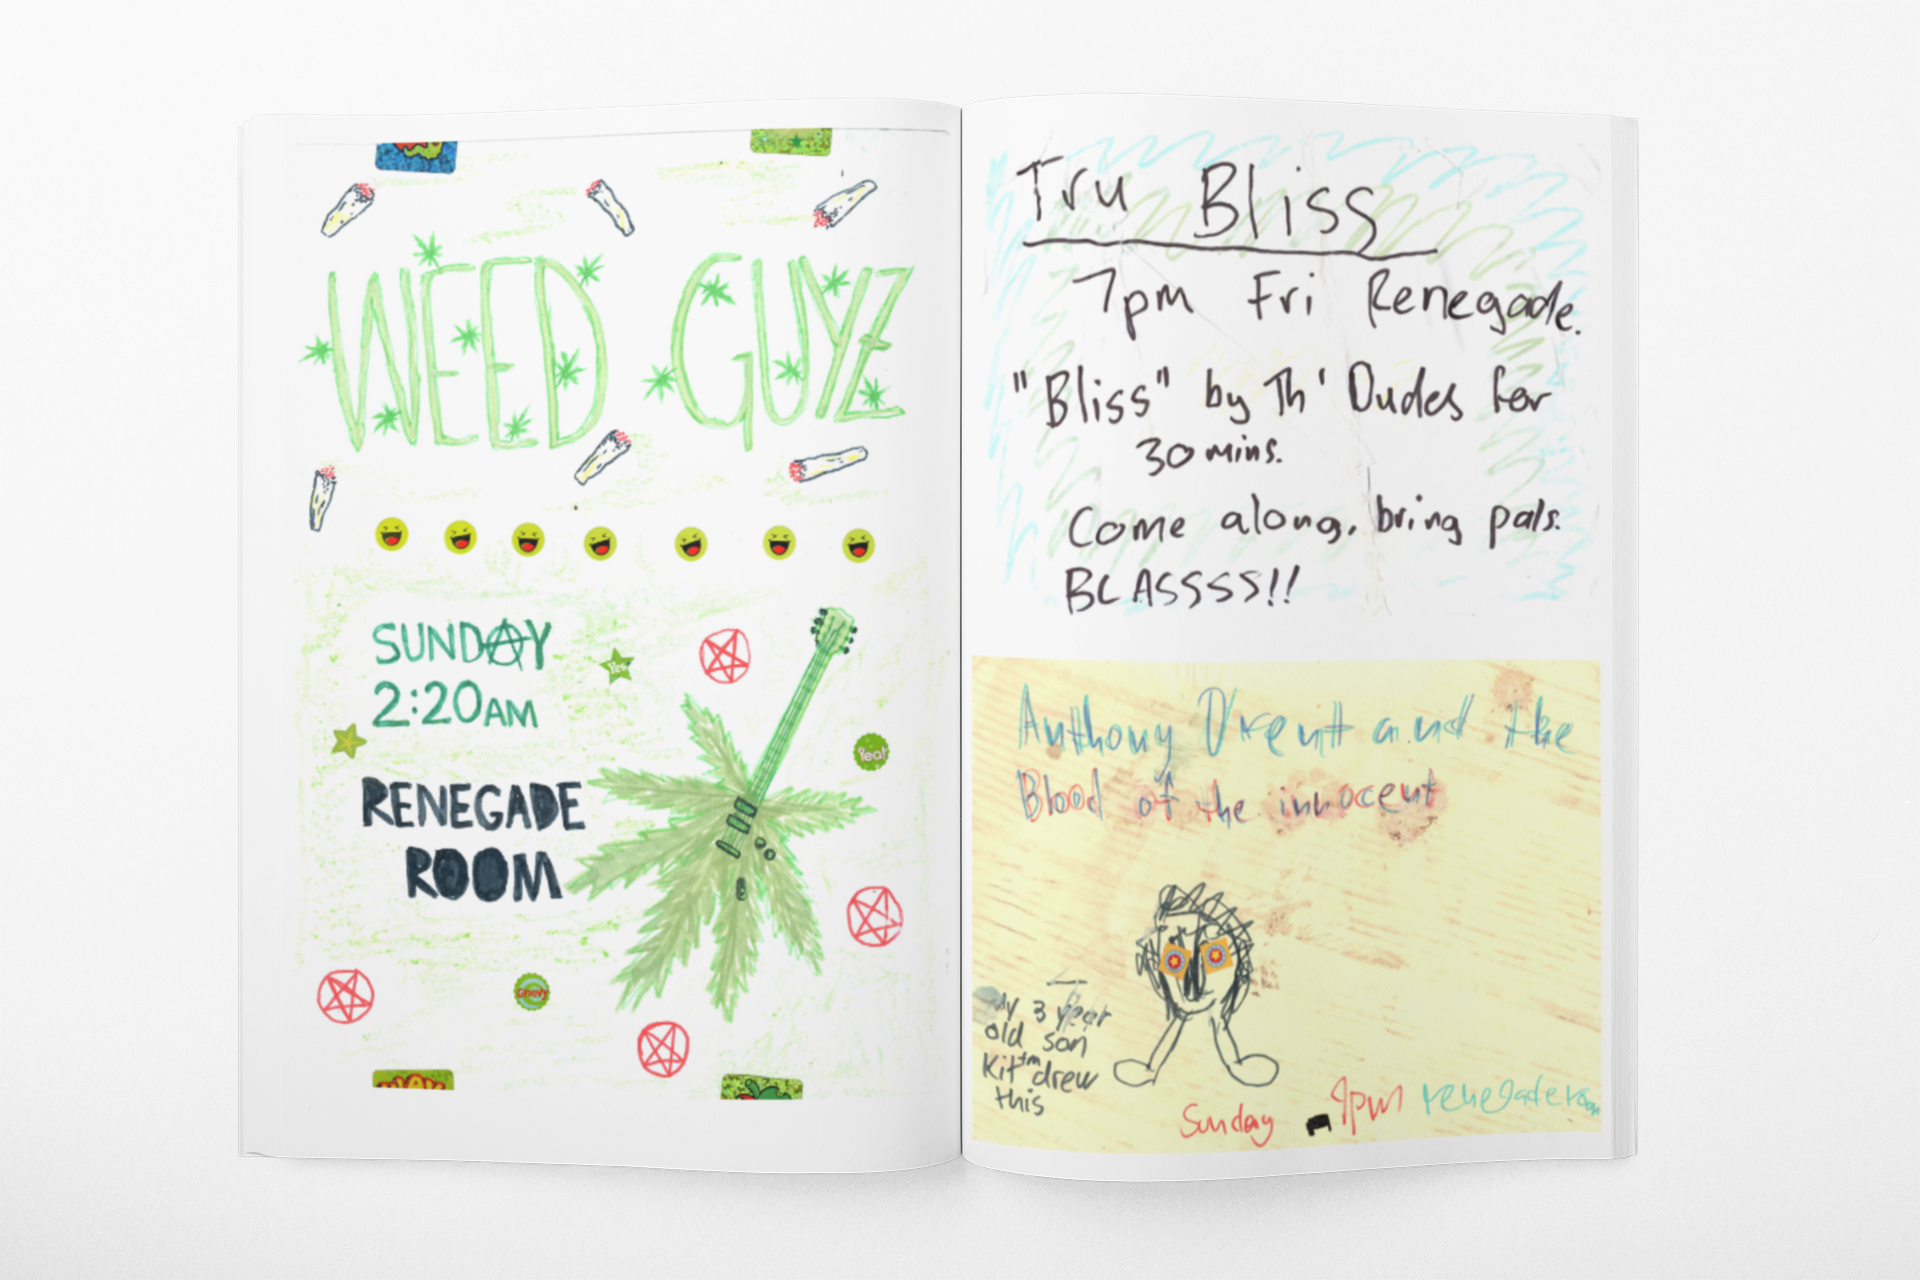 WEED GUYZ
SUNDAY
2:20AM
Yes
Yeah
RENEGADE
ROOM
Groovy
Tru Bliss
7pm Fri Renegade.
"Bliss" by Th' Dudes for
30 mins.
Come along, bring pals.
BLASSSS!!
Anthony D'rent and the
Blood of the innocent
My 3 year
old son
Kit™ drew
this
Sunday 9pm renegade room